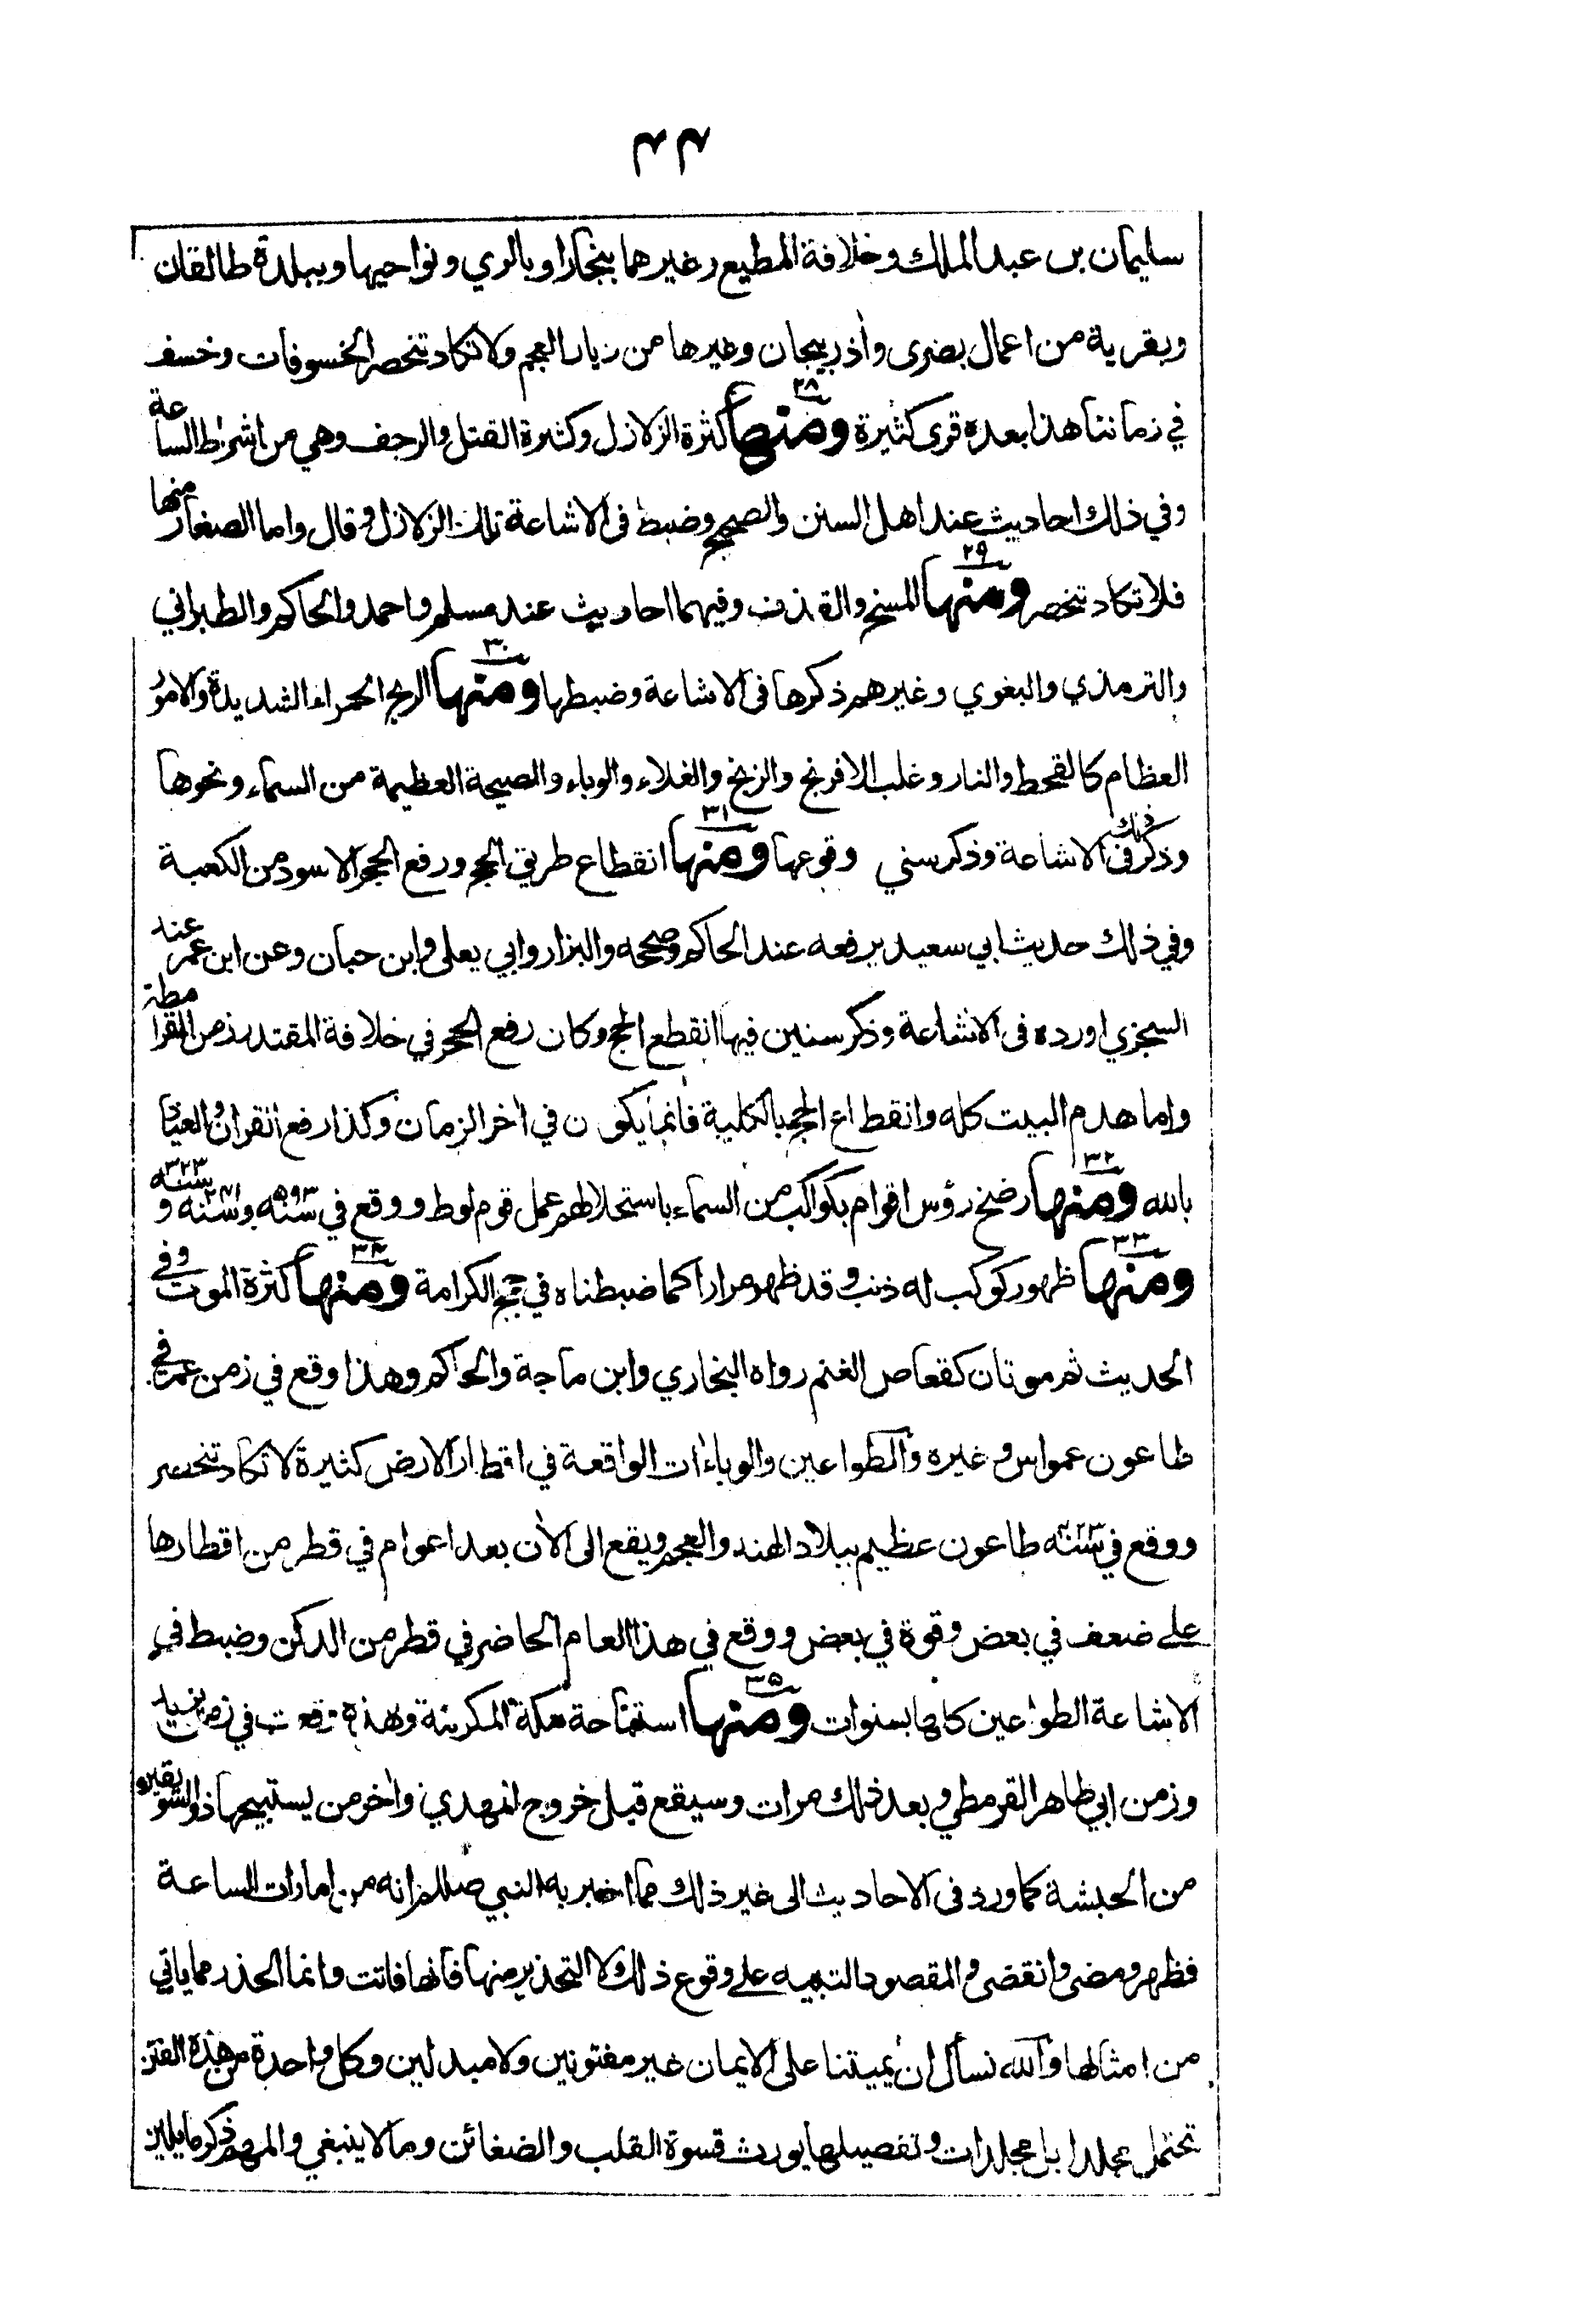 ٤٤
سليمان بن عبد الملك وخلافة المطيع وغيرهما ببخارا وبالري ونواحيها وببلدة طالقان
وبقرية من اعمال بصرى واذربيجان وغيرها من ديار العجم ولا تكاد تنحصر الخسوفات وخسف
في زماننا هذا بعدة قرى كثيرة ومنها ٢٨ كثرة الزلازل وكثرة القتل والرجف وهي من اشراط الساعة
وفي ذلك احاديث عند اهل السنن والصحيح وضبط في الاشاعة تلك الزلازل وقال واما الصغار منها
فلا تكاد تنحصر ومنها ٢٩ المسخ والقذف وفيهما احاديث عند مسلم واحمد والحاكم والطبراني
والترمذي والبغوي وغيرهم ذكرها في الاشاعة وضبطها ومنها ٣٠ الريح الحمراء الشديدة والامور
العظام كالقحط والنار وغلب الافرنج والزنج والغلاء والوباء والصيحة العظيمة من السماء ونحوها
وذكر ذلك في الاشاعة وذكر سني وقوعها ومنها ٣١ انقطاع طريق الحج ورفع الحجر الاسود من الكعبة
وفي ذلك حديث ابي سعيد يرفعه عند الحاكم وصححه والبزار وابي يعلى وابن حبان وعن ابن عمر عند
السجزي اورده في الاشاعة وذكر سنين فيها انقطع الحج وكان رفع الحجر في خلافة المقتدر زمن القرامطة
واما هدم البيت كله وانقطاع الحج بالكلية فانما يكون في اخر الزمان وكذا رفع القران والعياذ
بالله ومنها ٣٢ رضخ رؤس اقوام بكواكب من السماء باستحلالهم عمل قوم لوط ووقع في سنة ٥٩٣ وسنة ٢٤١ وسنة ٣٢٣
ومنها ٣٣ ظهور كوكب له ذنب وقد ظهر مرارا كما ضبطناه في حجج الكرامة ومنها ٣٤ كثرة الموت وفي
الحديث ثم موتان كقعاص الغنم رواه البخاري وابن ماجة والحاكم وهذا وقع في زمن عمر في
طاعون عمواس وغيره والطواعين والوباءات الواقعة في اقطار الارض كثيرة لا تكاد تنحصر
ووقع في سنة طاعون عظيم ببلاد الهند والعجم ويقع الى الآن بعد اعوام في قطر من اقطارها
على ضعف في بعض وقوة في بعض ووقع في هذا العام الحاضر في قطر من الدكن وضبط في
الاشاعة الطواعين كلها بسنوات ومنها ٣٥ استباحة مكة المكرمة وهذه وقعت في زمن يزيد
وزمن ابي طاهر القرمطي وبعد ذلك مرات وسيقع قبل خروج المهدي واخر من يستبيحها ذو السويقين
من الحبشة كما ورد في الاحاديث الى غير ذلك مما اخبر به النبي صللم انه من امارات الساعة
فظهر ومضى وانقضى والمقصود التنبيه على وقوع ذلك ولا التحذير منها فانها فاتت وانما الحذر مما ياتي
من امثالها والله نسأل ان يميتنا على الايمان غير مفتونين ولا مبدلين وكل واحدة من هذه الفتن
تحتمل مجلدا بل مجلدات وتفصيلها يورث قسوة القلب والضغائن وما لا ينبغي والمهم ذكر ما يلين